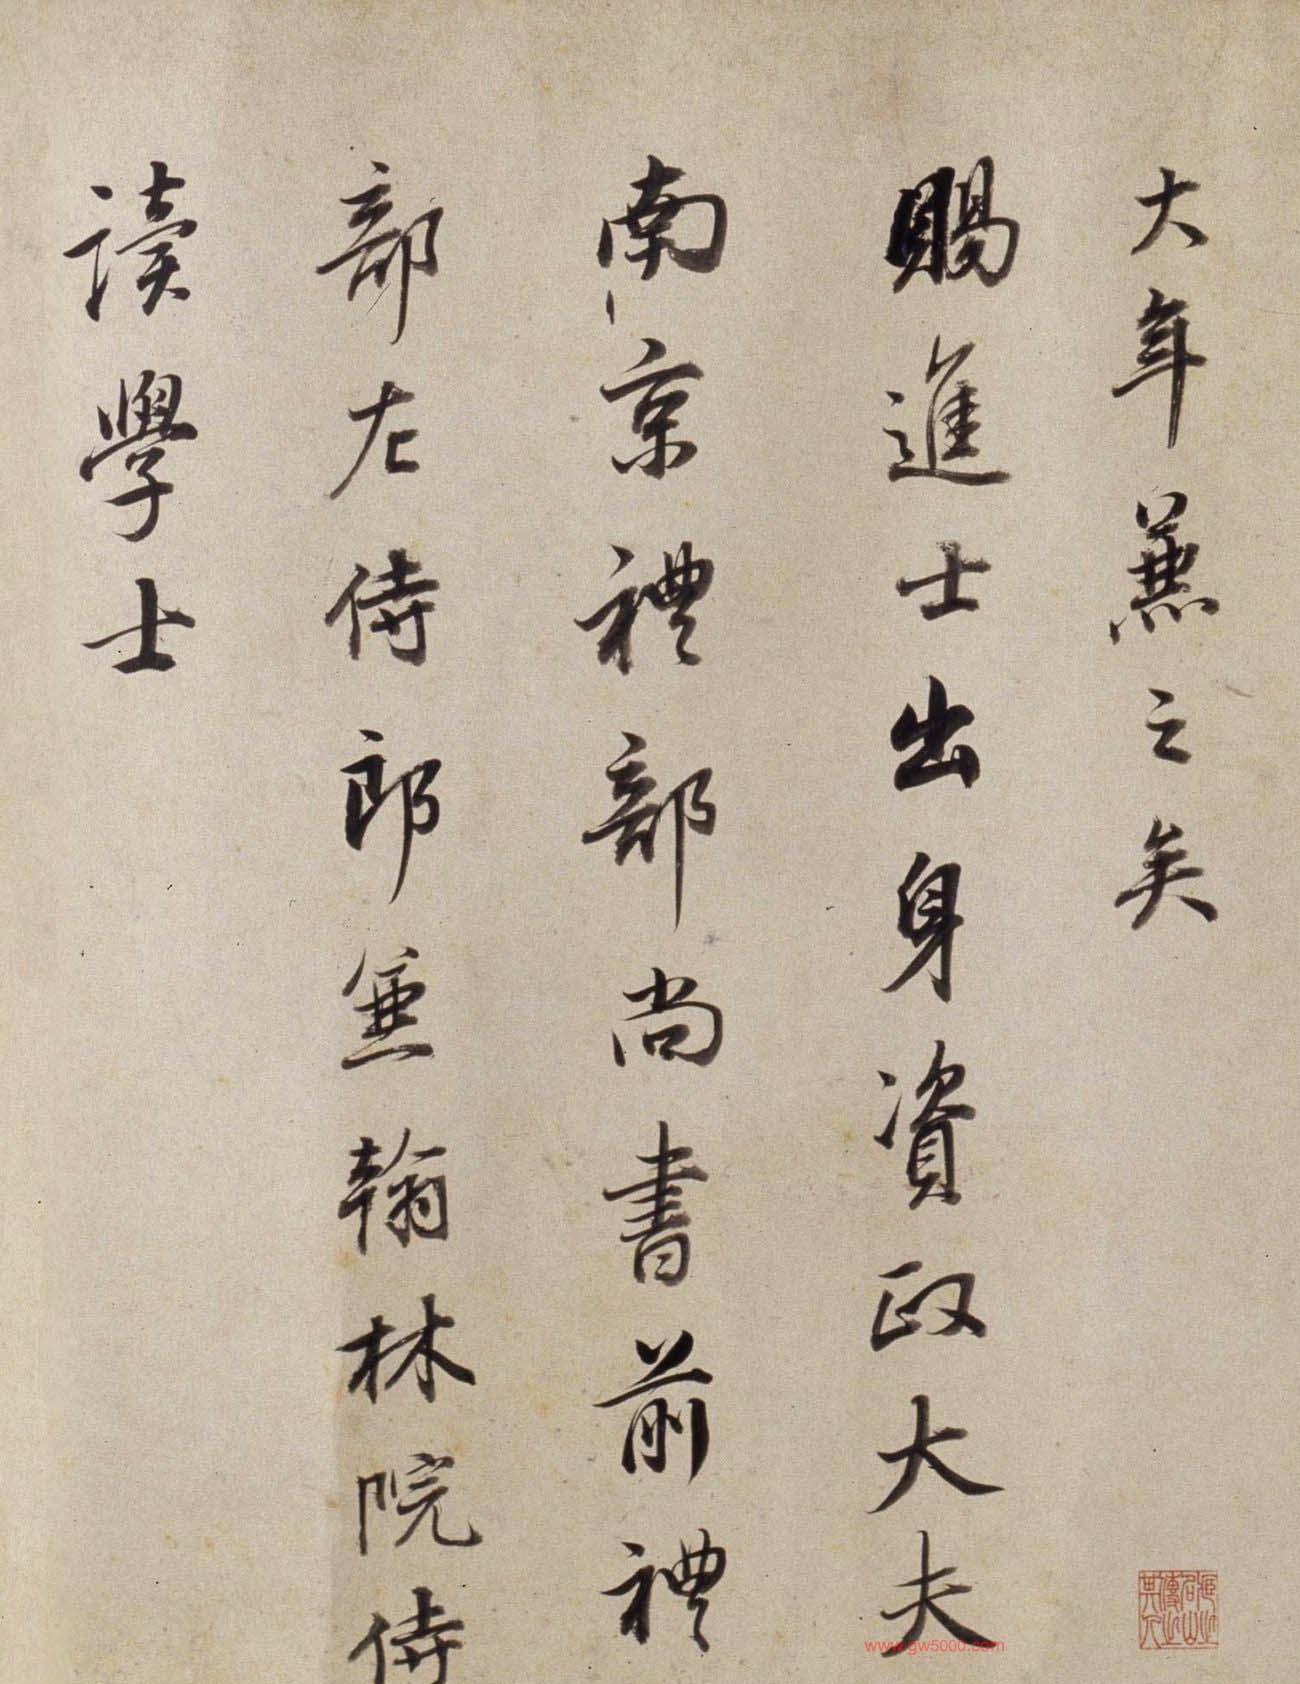 大年兼之矣
賜進士出身資政大夫
南京禮部尚書前禮
部左侍郎兼翰林院侍
讀學士
www.gw5000.com